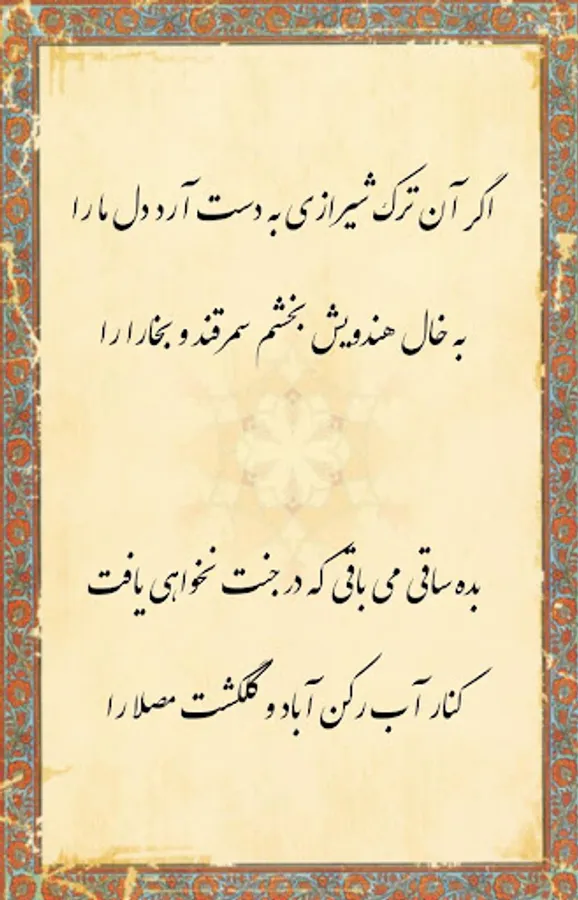 اگر آن ترک شیرازی به دست آرد دل ما را
به خال هندویش بخشم سمرقند و بخارا را
بده ساقی می باقی که در جنت نخواهی یافت
کنار آب رکن آباد و گلگشت مصلا را